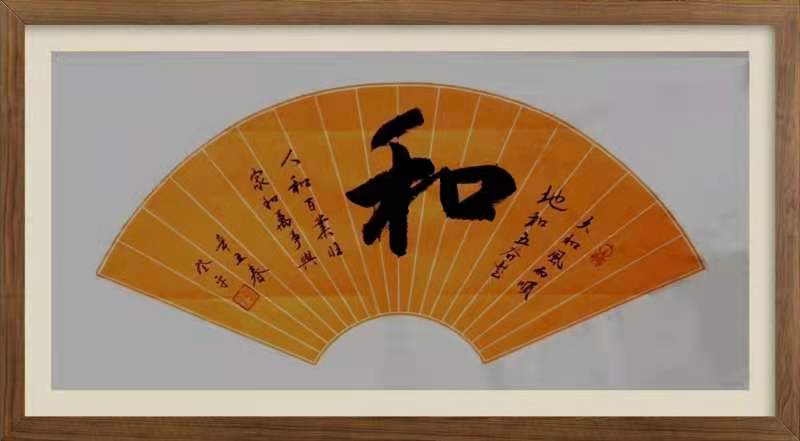 天和風雨順
地和五谷
和
人和百業旺
家和萬事興
辛丑春